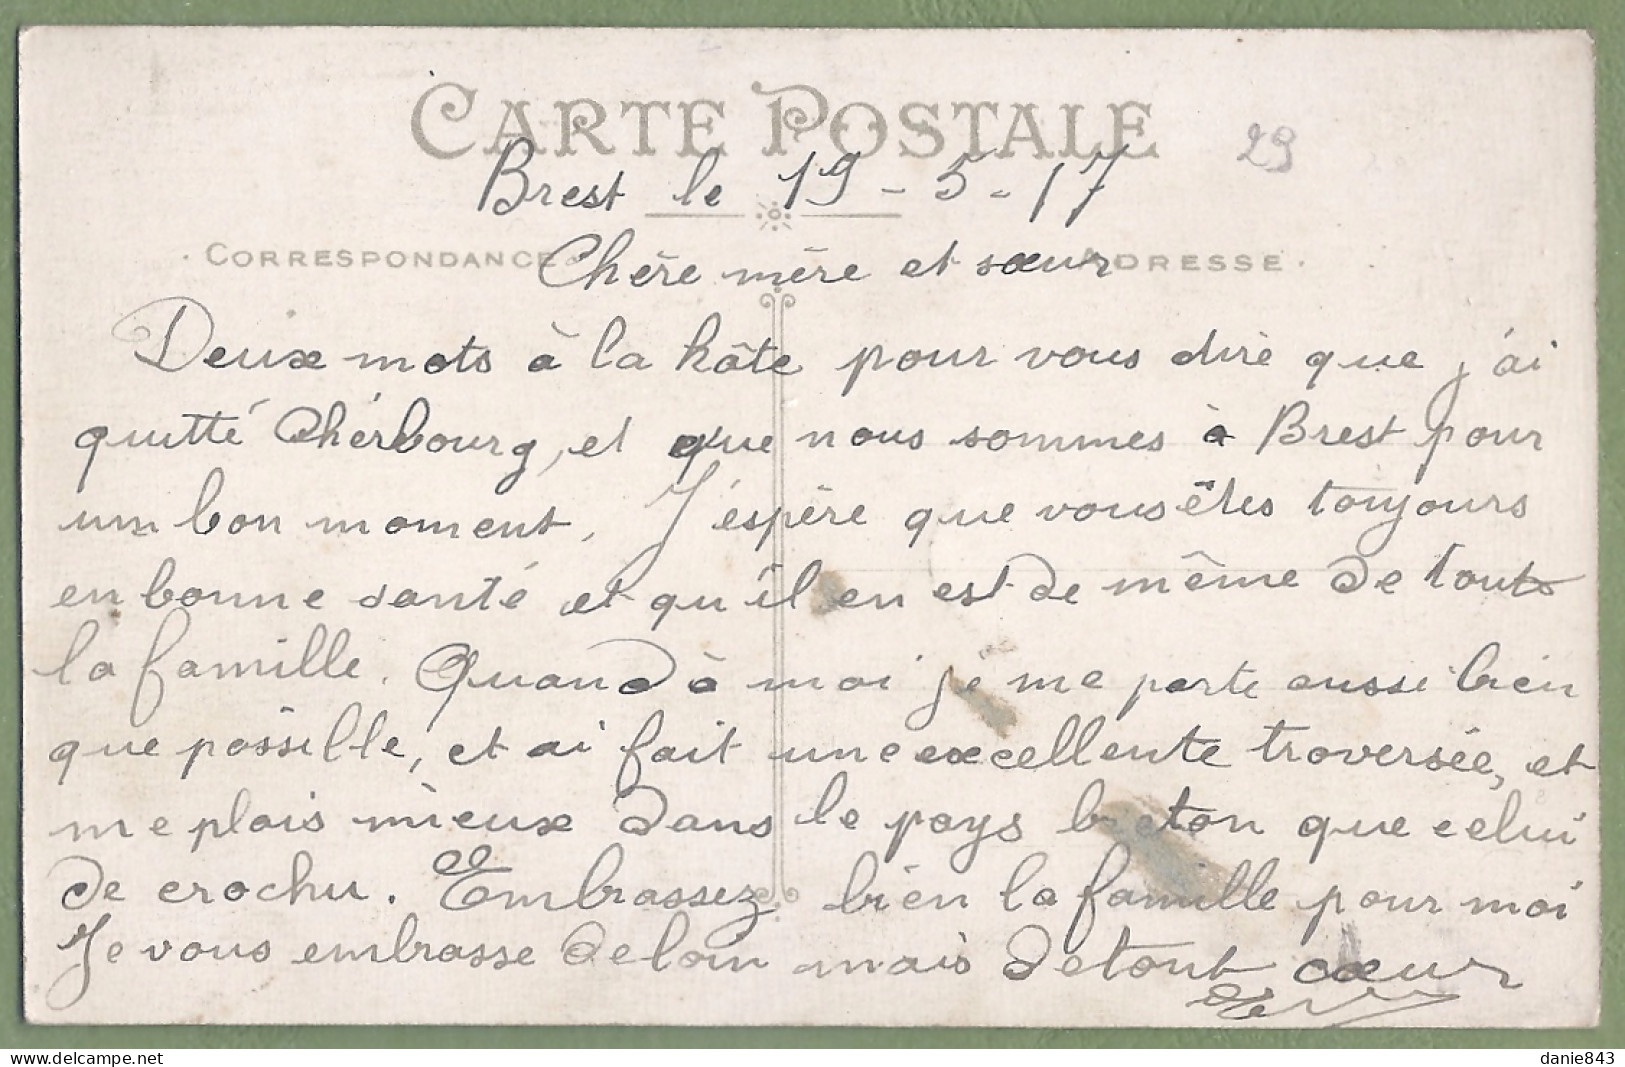 CARTE POSTALE
29
Brest le 19-5-17
CORRESPONDANCE
ADRESSE
Chère mère et sœur
Deux mots à la hâte pour vous dire que j'ai
quitté Cherbourg, et que nous sommes à Brest pour
un bon moment. J'espère que vous êtes toujours
en bonne santé et qu'il en est de même de toute
la famille. Quand à moi je me porte aussi bien
que possille, et ai fait une excellente traversée, et
me plais mieux dans le pays breton que celui
de crochu. Embrassez bien la famille pour moi
Je vous embrasse de loin mais de tout cœur
danie843